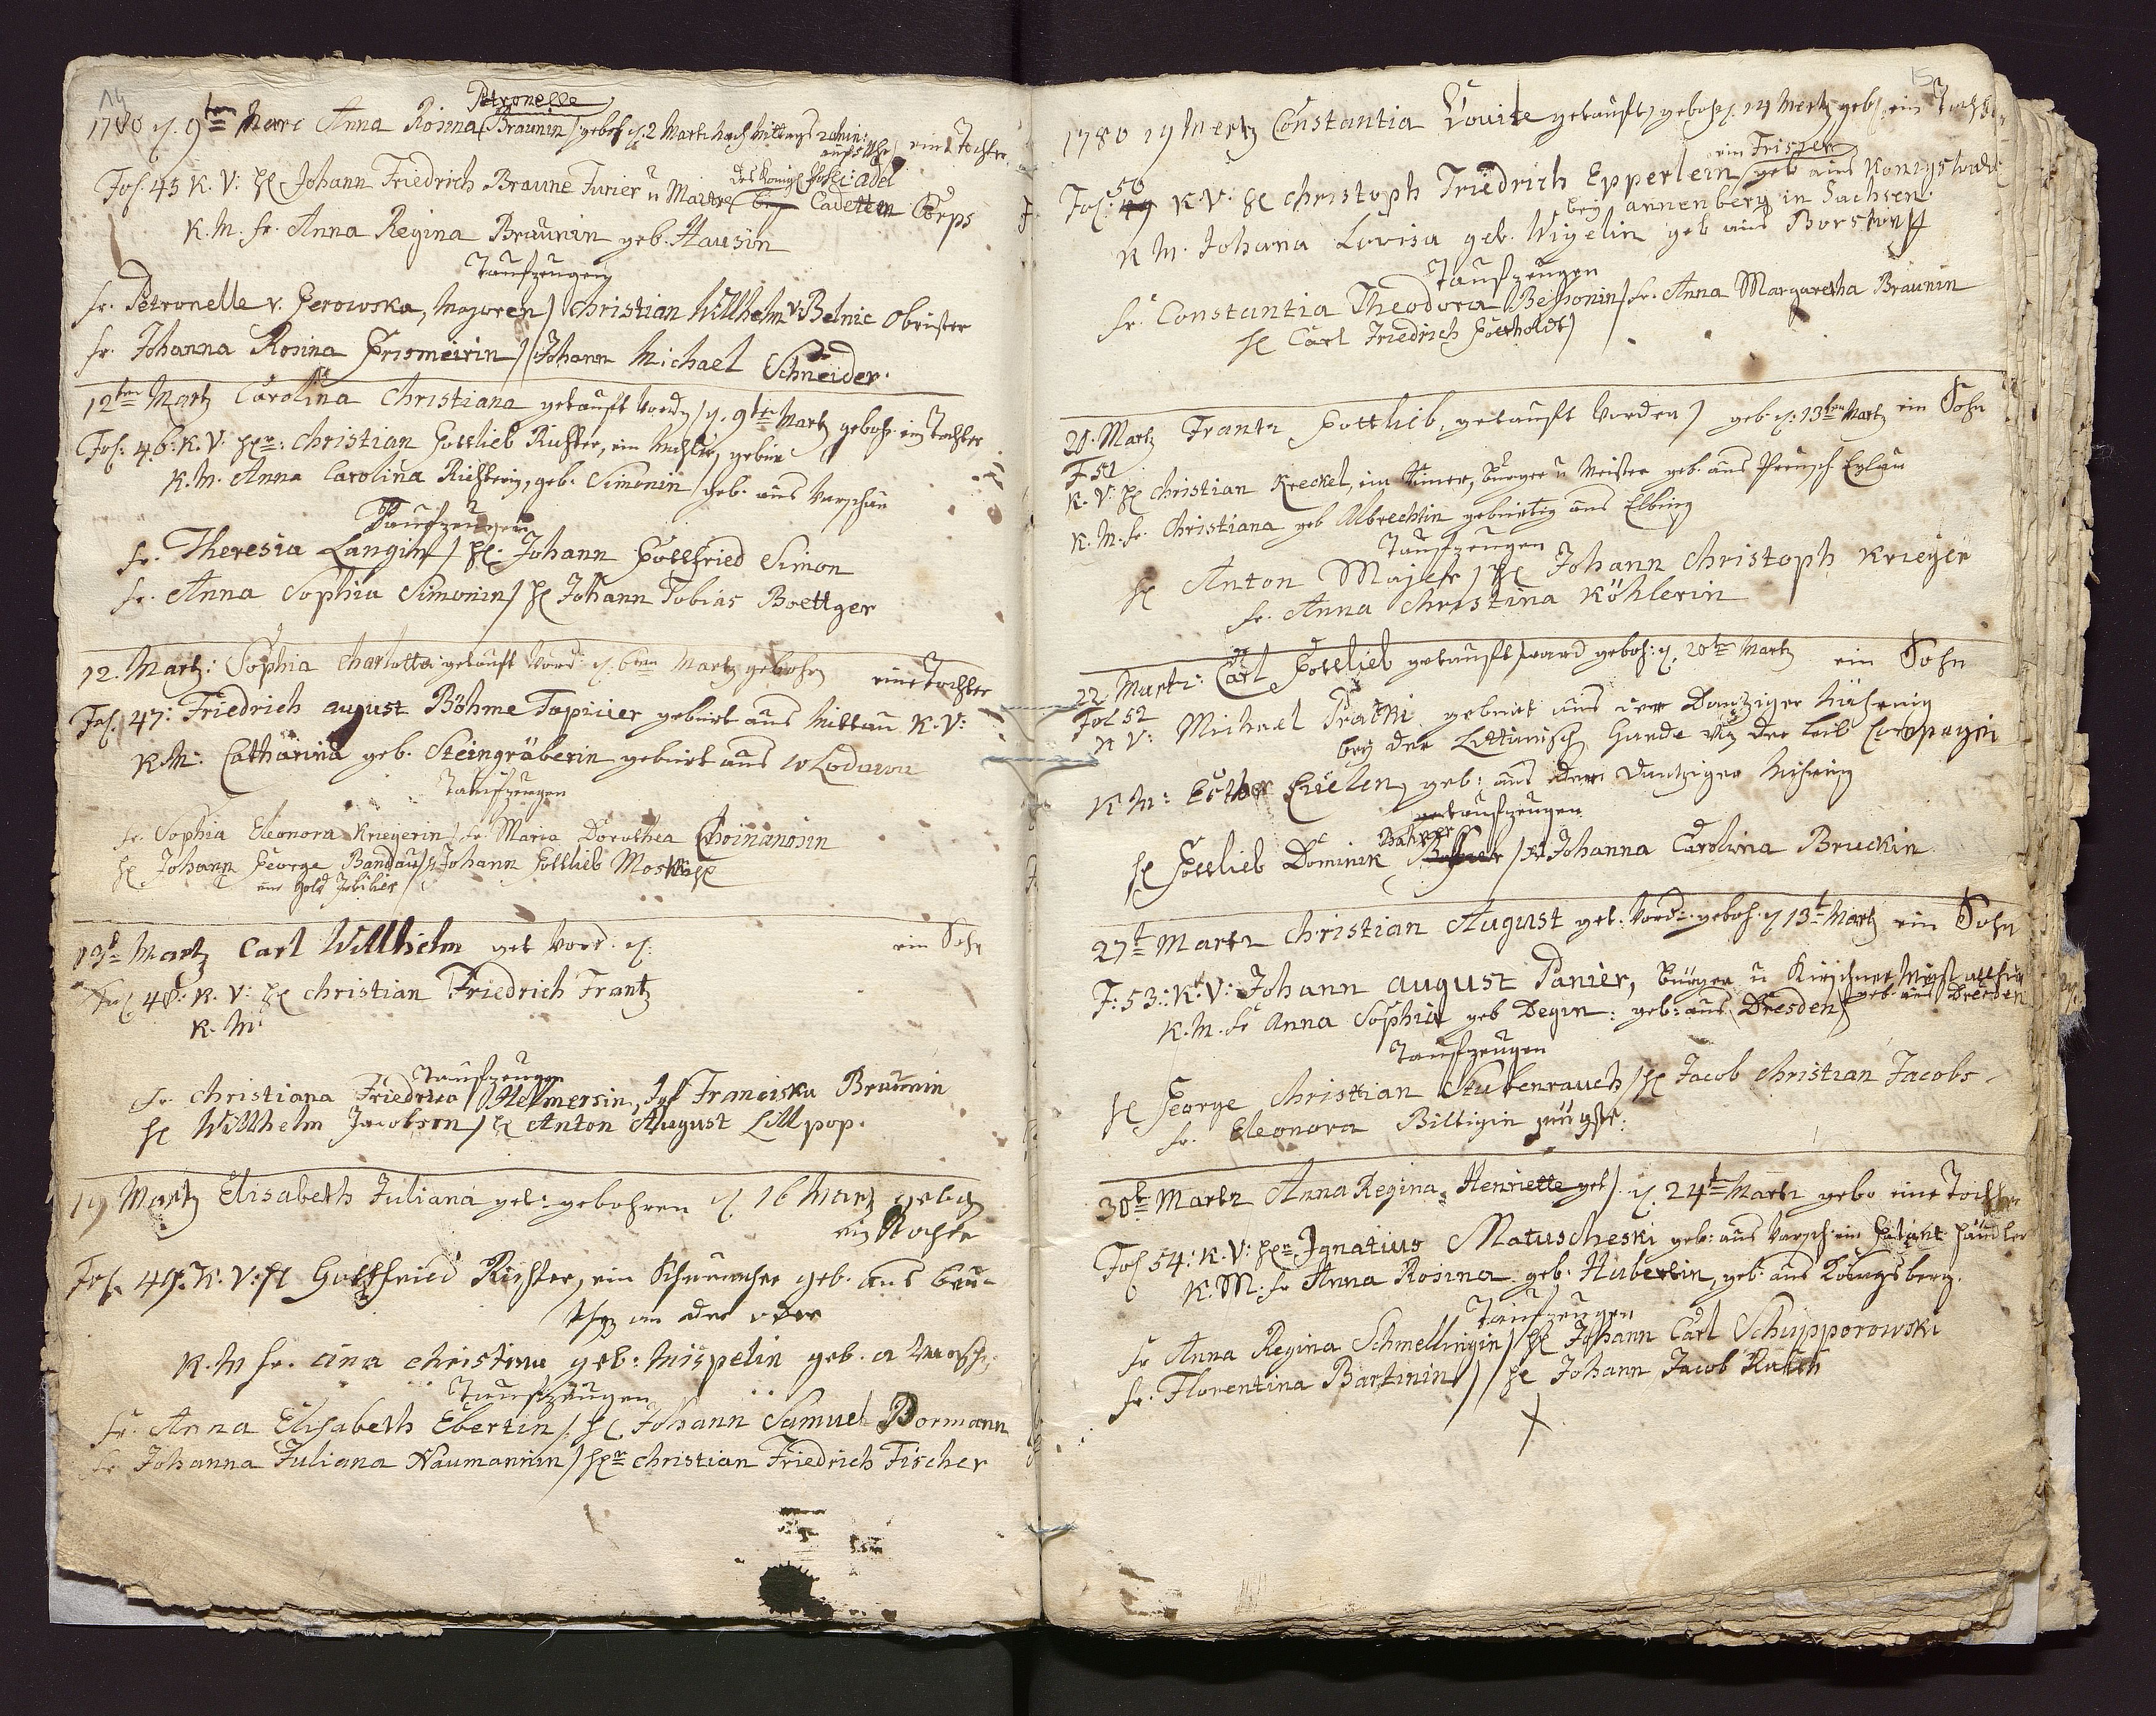 14
Petronelle
1780 d. 9ten Marc Anna Rosina (Braunin) geboh d. 2 Martz nach Mittags eine Tochter
Fol. 45 K. V: H Johann Friedrich Braune Furier u Maitre bey Cadetten Corps
K. M. fr. Anna Regina Braunin geb. Hausin
Taufzeugen
fr. Petronelle v. Gerowska, Majoren / Christian Willhelm v. Belnic Obrister
fr. Johanna Rosina Grismeirin / Johann Michael Schneider.
12ten Martz Carolina Christiana getauft word / d. 9ten Martz geboh: ein Tochter
Fol: 46: K. V. Hr: Christian Gottlieb Richter, ein
K. M. Anna Carolina Richterin, geb. Simonin / geb. aus Varschau
Taufzeugen
fr. Theresia Langin / H. Johann Gottfried Simon
fr. Anna Sophia Simonin / H Johann Tobias Boettger
12. Martz: Sophia Charlotta getauft word: d. 6ten Martz gebohr eine Tochter
Fol. 47: Friedrich august Böhme Tapicier gebürt aus Mittau K. V:
K. M: Catharina geb. Steingräberin gebürt aus
Taufzeugen
fr. Sophia Eleonora Kriegerin / fr. Maria Dorothea Choinanosin
H Johann George Bandau / H Johann Gottlieb
13t Martz Carl Willhelm get Word. d. ein Sohn
Fol 48. K. V: H Christian Friedrich Frantz
K. M:
Taufzeugen
fr. Christiana Friedrica Helmersin, Jgf Franciska Braunin
H Willhelm Jacobson / H Anton August Lillpop.
19 Martz Elisabeth Juliana get: gebohren d. 16 Martz
ein Tochter
Fol. 49. K. V: H Gottfried Richter, ein Schumacher geb. aus Beu-
then an der oder
K. M fr. ana Christina geb: Mispelin geb. a Warsch:
Taufzeugen
fr. Anna Elisabeth Ebertin / H Johann Samuel Dormann
fr. Johanna Juliana Naumannin / Hr Christian Friedrich Fischer
15
1780 19 Mertz Constantia Louise getauft / geboh d. 14 Mertz geb: ein Tochter
ein Friser
Fol: 50 K. V. H Christoph Friedrich Epperlein / geb aus Konigswalde
bey annenberg in Sachsen.
K M. Johana Lovisa geb. Wigelin geb aus
Taufzeugen
fr. Constantia Theodora Bessonin / fr. Anna Margaretha Braunin
H Carl Friedrich
20. Martz Frantz Gottlieb, getauft worden / geb. d. 13ten Martz ein Sohn
F 51
K. V: H Christian Kreckel, ein Burger u Meister geb. aus Preusch Eylau
K. M. fr. Christiana geb Albrechtin gebürtig aus Elbing
Taufzeugen
H Anton Majer / H Johann Christoph Krieger
fr. Anna Christina Köhlerin
22 Martz: Carl Gottlieb getauft / ward geboh: d. 20ten Martz ein Sohn
Fol 52
K V: Michael Pratki gebürt aus der Dantziger
bey der Littauisch Garde von der leib Compagni
K. M: Esther geb: aus der Dantziger
Taufzeugen
H Gottlieb Dominik Bahrer / fr Johanna Carolina Bruckin
27t Martz Christian August get. word: geboh. d 13t Martz ein Sohn
F: 53: K. V: Johann august Panier, Bürger u Kirschner Mist. allhir
geb. aus Dresden
K. M. Fr Anna Sophia geb Degin: geb: aus Dresden
Taufzeugen
H George Christian Stubenrauch / H Jacob Christian Jacobs
fr. Eleonora Billigin
30t Martz Anna Regina Henriette get / d. 24t Martz gebo eine Tochter
Fol 54: K. V: Hr Ignatius Matuscheski geb: aus Varsch: ein händler
K. M: fr Anna Rosina geb. Hubertin, geb: aus Königsberg.
Taufzeugen
fr Anna Regina Schmellingin / H Johann Carl Schupporowski
fr. Florentina Bartinin / H Johann Jacob